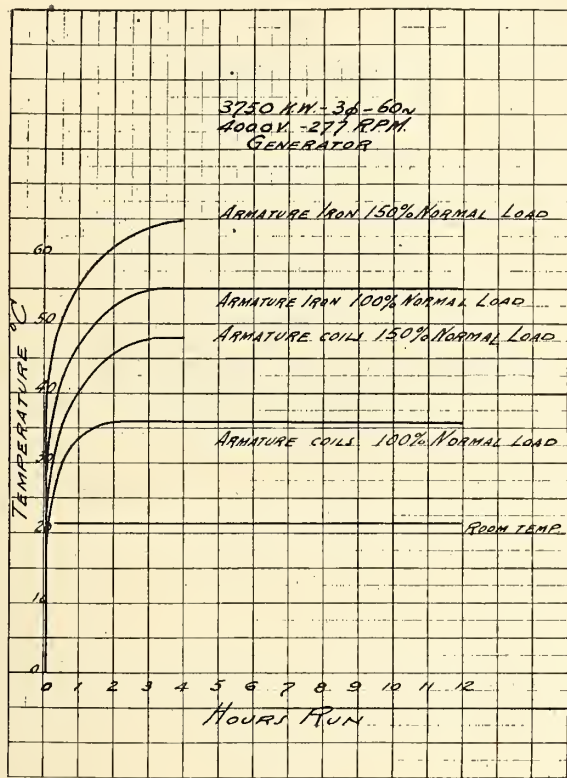 3750 K.W. - 3ϕ - 60~
4000V. - 277 RPM.
GENERATOR
ARMATURE IRON 150% NORMAL LOAD
60
ARMATURE IRON 100% NORMAL LOAD
50
ARMATURE COILS 150% NORMAL LOAD
40
ARMATURE COILS 100% NORMAL LOAD
30
TEMPERATURE °C
20
ROOM TEMP.
10
0
0 1 2 3 4 5 6 7 8 9 10 11 12
HOURS RUN